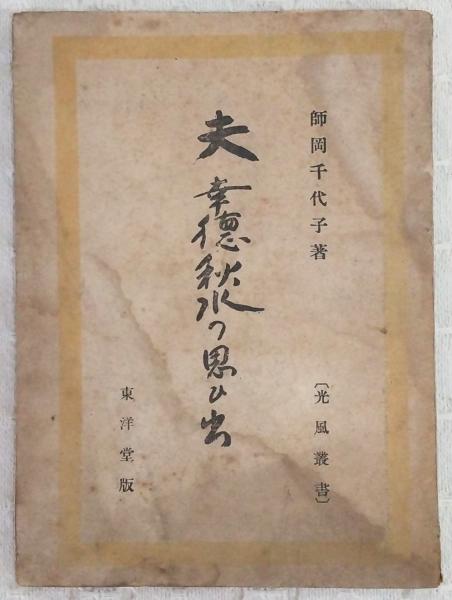 師岡千代子著
〔光風叢書〕
夫 幸徳秋水の思ひ出
東洋堂版